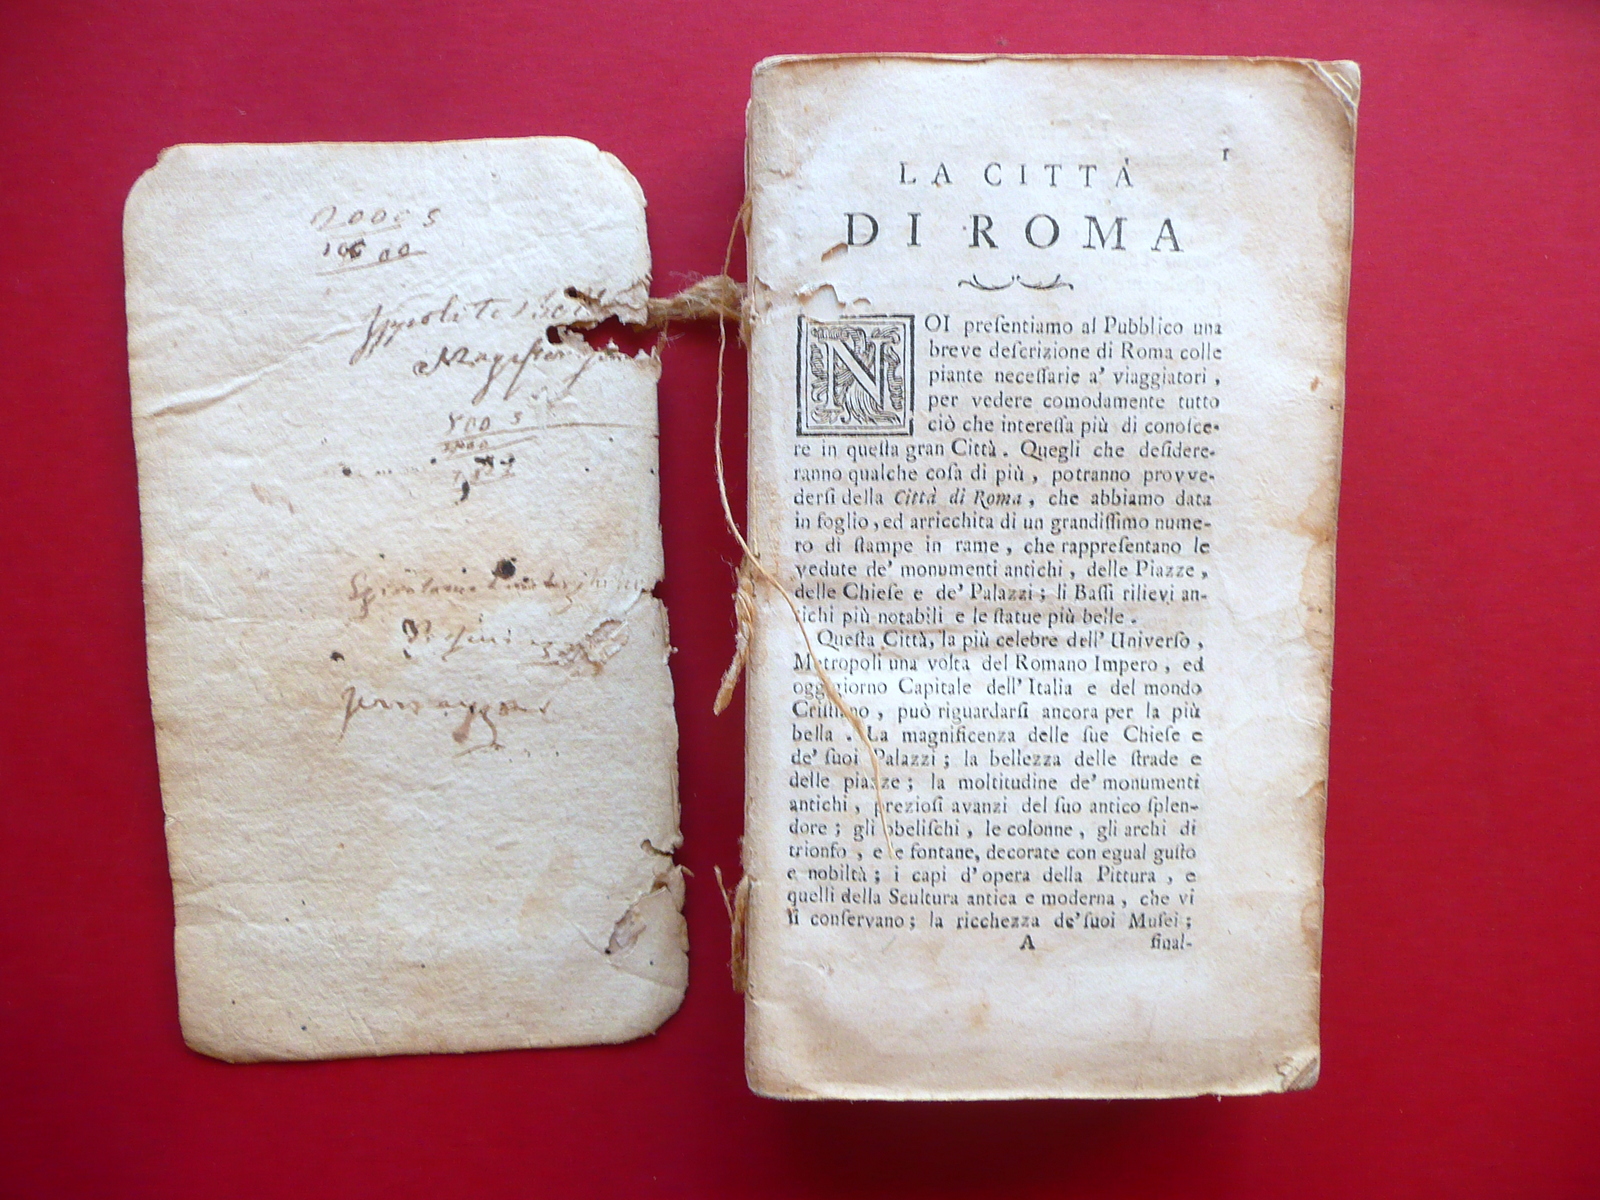 1
LA CITTÀ
DI ROMA
NOI preſentiamo al Pubblico una
breve deſcrizione di Roma colle
piante neceſſarie a' viaggiatori,
per vedere comodamente tutto
ciò che intereſſa più di conoſce-
re in queſta gran Città. Quegli che deſidere-
ranno qualche coſa di più, potranno provve-
derſi della Città di Roma, che abbiamo data
in foglio, ed arricchita di un grandiſſimo nume-
ro di ſtampe in rame, che rappreſentano le
vedute de' monumenti antichi, delle Piazze,
delle Chieſe e de' Palazzi; li Baſſi rilievi an-
tichi più notabili e le ſtatue più belle.
Queſta Città, la più celebre dell' Univerſo,
Metropoli una volta del Romano Impero, ed
oggigiorno Capitale dell' Italia e del mondo
Criſtiano, può riguardarſi ancora per la più
bella. La magnificenza delle ſue Chieſe e
de' ſuoi Palazzi; la bellezza delle ſtrade e
delle piazze; la moltitudine de' monumenti
antichi, prezioſi avanzi del ſuo antico ſplen-
dore; gli obeliſchi, le colonne, gli archi di
trionfo, e le fontane, decorate con egual guſto
e nobiltà; i capi d' opera della Pittura, e
quelli della Scultura antica e moderna, che vi
ſi conſervano; la ricchezza de' ſuoi Muſei;
A final-